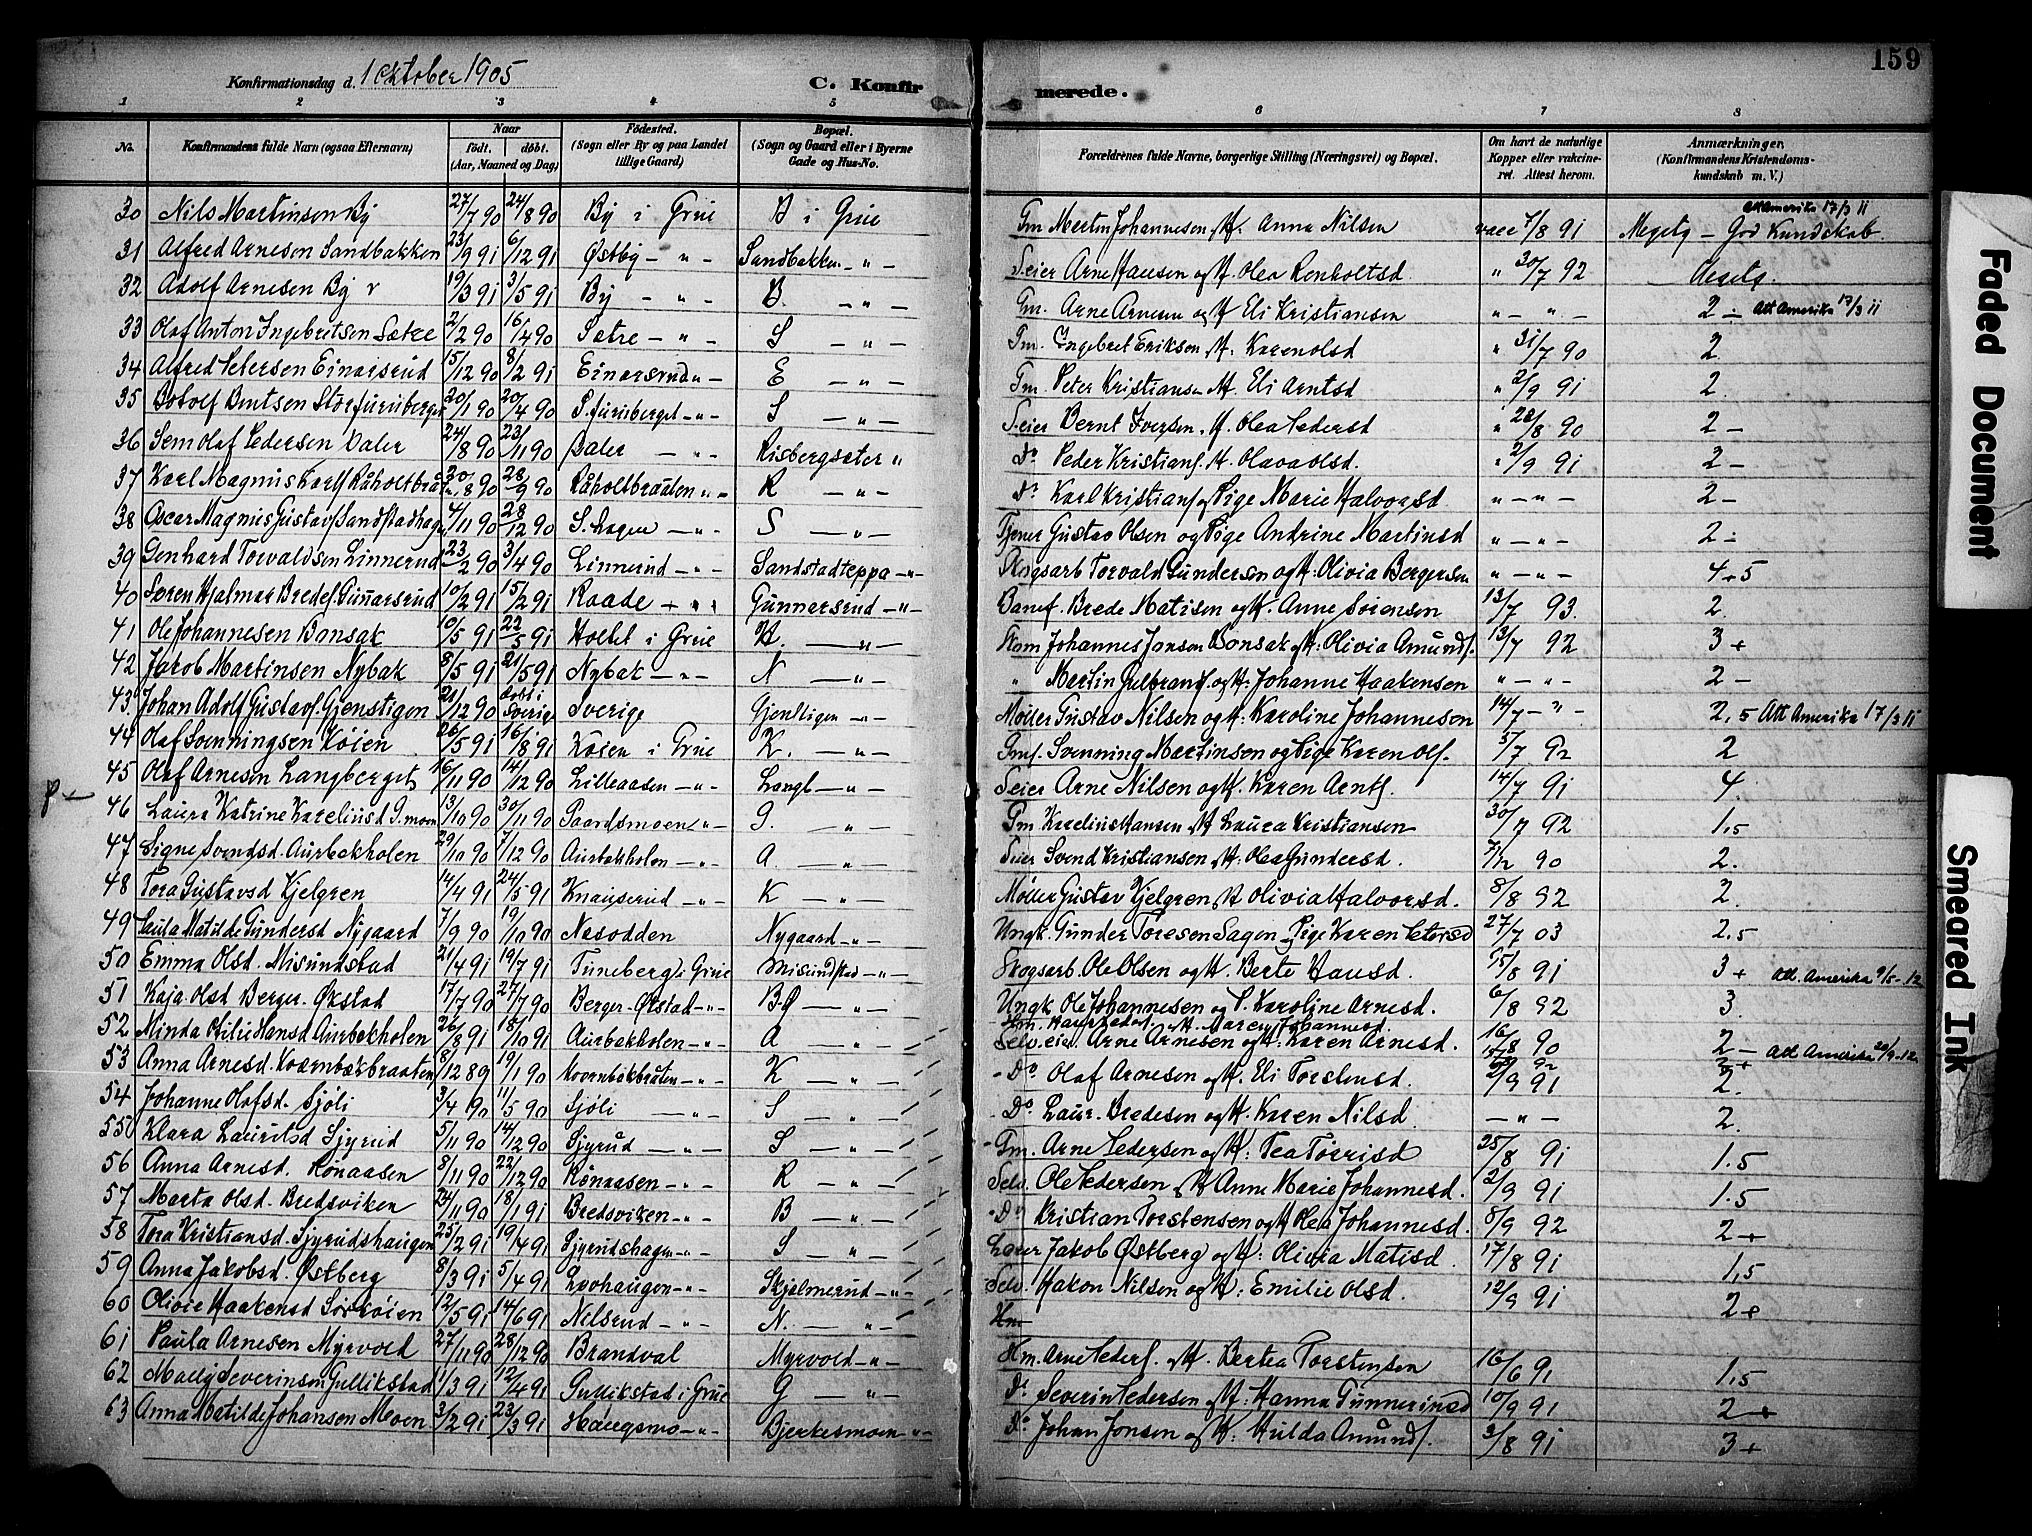 159
Konfirmationsdag d. 1 Oktober 1905
C. Konfirmerede.
1 2 3 4 5 6 7 8
No. Konfirmandens fulde Navn (ogsaa Efternavn) Naar født. døbt. (Aar, Maaned og Dag) Fødested. (Sogn eller By og paa Landet tillige Gaard) Bopæl. (Sogn og Gaard eller i Byerne Gade og Hus-No. Forældrenes fulde Navne, borgerlige Stilling (Næringsvei) og Bopæl. Om havt de naturlige Kopper eller vakcineret. Attest herom. Anmærkninger. (Konfirmandens Kristendomskundskab m. V.)
30 Nils Martinsen By 27/7 90 24/8 90 By i Grue B i Grue Gm Martin Johannesen H. Anna Nilsen vacc 7/8 91 Megetg - God Kundskab. Att Amerika 17/3 11
31 Alfred Arnesen Sandbakken 23/9 91 6/12 91 Østby - " - Sandbakken - " - Seier Arne Hansen og H. Olea Renholtsd. " 30/7 92
32 Adolf Arnesen By 19/3 91 3/5 91 By - " - B. - " - Gm. Arne Arnesen og H Eli Kristiansen " - " - 2 - Att Amerika 17/3 11
33 Olaf Anton Ingebritsen Sætre 2/2 90 16/4 90 Sætre - " - S - " - Gm. Ingebret Eriksen H. Karen Olsd " 31/7 90 2
34 Alfred Petersen Einarsrud 15/12 90 8/2 91 Einarsrud " - E - " - Gm. Peter Kristiansen H. Eli Arntsd " 2/9 91 2.
35 Botolf Berntsen Storfuruberget 20/1 90 20/4 90 S.furuberget - " - S - " - Seier Bernt Iversen, H. Olea Pedersd " 28/8 90 2 -
36 Sem Olaf Pedersen Daler 24/8 90 23/11 90 Daler - " - Risbergsæter " Do Peder Kristians. H. Olava Olsd. " 2/9 91 2 -
37 Karl Magnus Karls Råholtbråten 30/8 90 28/9 90 Råholtbraaten " - R - " - Do Karl Kristians og Pige Marie Halvorsd " - " - 2 -
38 Oscar Magnus Gustavs Sandstadhagen 4/11 90 28/12 90 S. hagen - " - S - " - Tjener Gustav Olsen og Pige Andrine Martinsd " - " - 2 -
39 Genhard Torvaldsen Linnerud 23/2 90 3/4 90 Linnerud - " - Sandstadteppa - " - Skogsarb Torvald Gundersen og H. Olivia Bergersen " - " - 4+5
40 Søren Hjalmar Bredes. Gunnarsrud 10/2 91 15/2 91 Raade - " - Gunnarsrud - " - Banef. Brede Matisen og H. Anne Sørensen 13/7 93. 2.
41 Ole Johannesen Bonsak 10/5 91 22/5 91 Holtet i Grue H. - " - Skom Johannes Jonsen Bonsak og H. Olivia Amunds. 13/7 92 3 +
42 Jakob Martinsen Nybak 8/5 91 21/5 91 Nybak - " - N - " - " Martin Gulbrands. og H. Johanne Haakensen " - " - 2 -
43 Johan Adolf Gustavs. Gjenstigen 21/12 90 døbt i Sverige Sverige Gjenstigen - " - Møller Gustav Nilsen og H. Karoline Johannesen 14/7 - " - 2,5 Att Amerika 17/3 11
44 Olaf Svenningsen Køien 26/5 91 16/8 91 Køien i Grue K. - " - Gmf. Svenning Martinsen og Pige Karen Ols. 5/7 92 2
45 Olaf Arnesen Langberget 16/11 90 14/12 90 Lilleaasen - " - Langb - " - Seier Arne Nilsen og H. Karen Arnts. 14/7 91 4.
46 Laura Katrine Karelinsd G.moen 13/10 90 30/11 90 Gaardsmoen " - G. - " - Gm Karelius Hansen H Laura Kristiansen 30/7 92 1,5
47 Signe Svendsd. Aurbekholen 29/10 90 7/12 90 Aurbekholen - " - A. - " - Seier Svend Kristiansen H. Olea Gundersd. 7/12 90 2.
48 Tora Gustavsd Kjelgren 14/4 91 24/5 91 Knauserud - " - K - " - Møller Gustav Kjelgren H Olivia Halvorsd. 8/8 92 2.
49 Paula Matilde Gundersd Nygaard 7/9 90 19/10 90 Nasodden Nygaard - " - Ungk. Gunder Toresen Sagen - Pige Karen Petersd 27/7 03 2.5
50 Emma Olsd. Misundstad 21/4 91 19/7 91 Tuneberg i Grue Misundstad - " - Skogsarb. Ole Olsen og H. Berte Hansd. 15/8 91 3 + Att. Amerika 9/5-12
51 Kaja Olsd Berger-Økstad 17/7 90 27/7 90 Berger-Økstad - " - BØ - " - Ungk Ole Johannesen og P. Karoline Arnesd. 6/8 92 3.
52 Minda Otilie Hansd Aurbekholen 26/8 91 18/10 91 Aurbekholen - " - A - " - H. Maren Johannesd.
53 Anna Arnesd. Kværnbækbraaten 8/12 89 19/1 90 Kvernbekbråten - " - K - " - Selv.eier Arne Arnesen og H. Karen Arnesd. 16/8 90 2 - Att Amerika 20/9-12
54 Johanne Olafsd. Sjøli 3/4 90 11/5 90 Sjöli - " - S - " - Do Olaf Arnesen og H. Eli Torstensd. 2/9 91 2.
55 Klara Lauritsd Sjyrud 5/11 90 14/12 90 Sjyrud - " - S - " - Do Laur. Bredesen og H. Karen Nilsd. - " - 2.
56 Anna Arnesd. Rønaasen 8/11 90 22/12 90 Rønaasen - " - R - " - Gm. Arne Pedersen og H. Tea Torrisd 25/8 91 1.5
57 Marta Olsd. Bredsviken 24/11 90 18/1 91 Bredsviken - " - B - " - Selv. Ole Pedersen H Anne Marie Johannesd. 2/9 91 1.5
58 Tora Kristiansd. Sjyrudshaugen 25/2 91 19/4 91 Sjyrudshagen - " - S - " - Do Kristian Torstensen og H Olea Johannesd. 8/9 92 2 +
59 Anna Jakobsd. Østberg 8/3 91 5/4 91 Lvohaugen - " - Skjelmerud - " - Lærer Jakob Østberg og H. Olivia Matisd. 17/8 91 1,5
60 Olivie Haakensd Sørkøien 12/5 91 14/6 91 Nilsrud - " - N. - " - Selv. Hakon Nilsen og H. Emilie Olsd. 12/9 91 2 +
Hm
61 Paula Arnesen Myrvold 27/11 90 28/12 90 Brandval Myrvold - " - Hm. Arne Peders. H. Bertea Torstensen 16/6 91 1,5
62 Mally Severinsen Gullikstad 1/3 91 12/4 91 Gullikstad i Grue G - " - Do Severin Pedersen H. Hanna Gunnerinsd 10/9 91 2 +
63 Anna Matilde Johansen Moen 3/2 91 23/3 91 Haugsmo - " - Bjerkesmoen " - Do Johan Jonsen og H. Hulda Amunds. 3/8 91 3 +
Faded Document
Smeared Ink